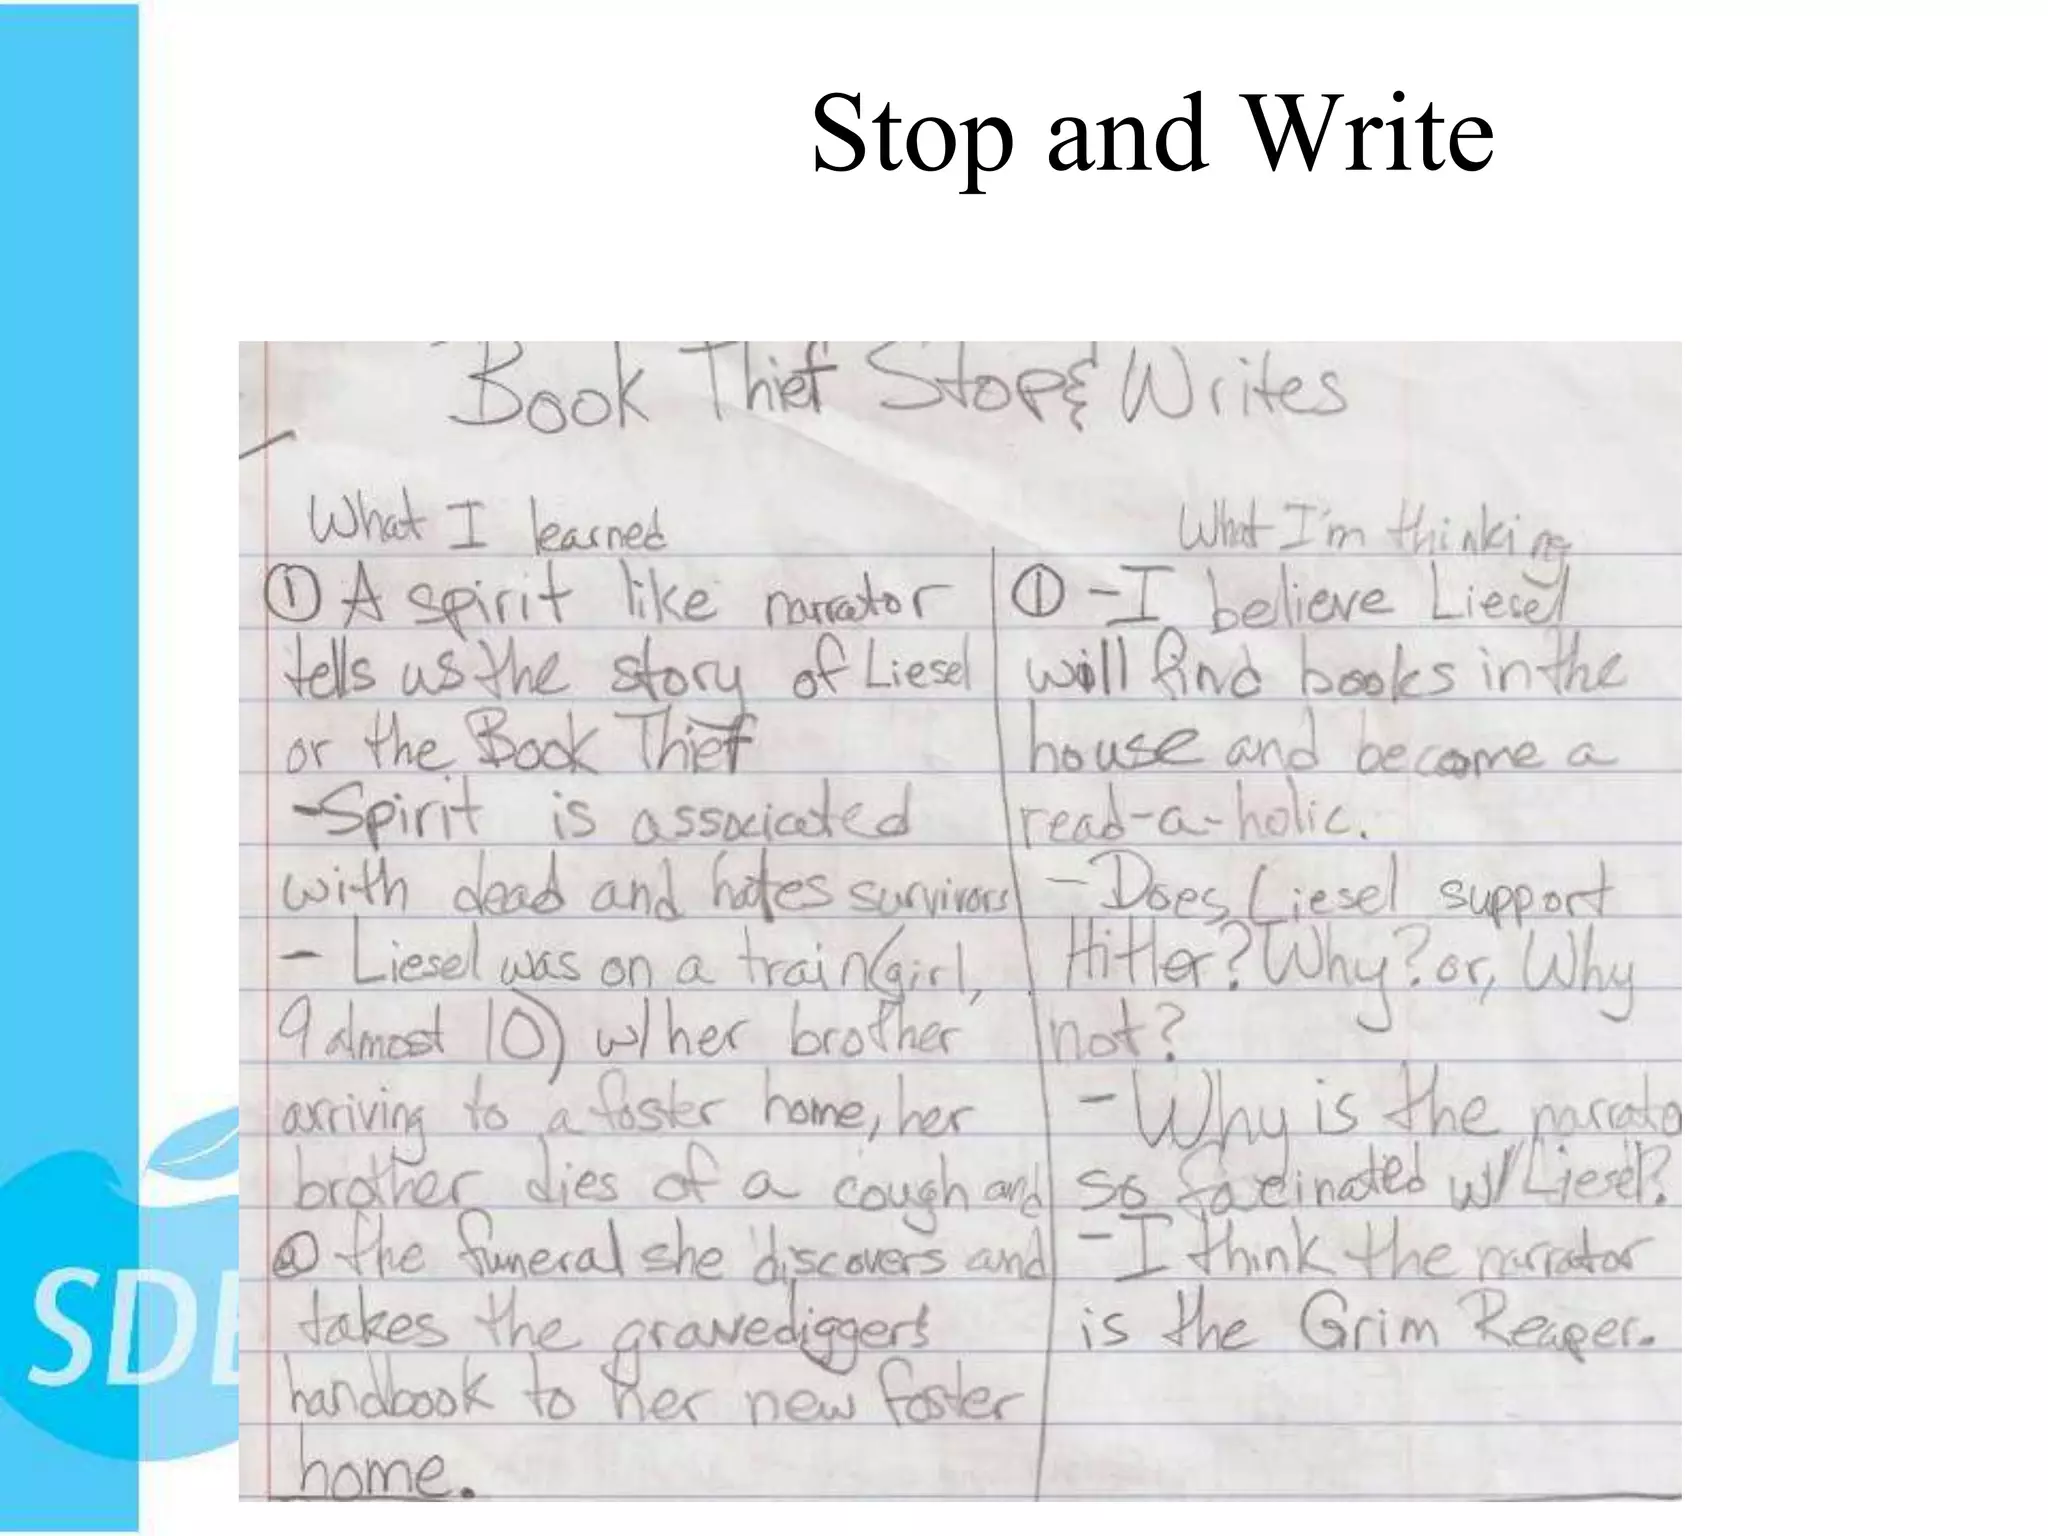 Stop and Write
Book Thief Stop & Writes
What I learned
① A spirit like narrator
tells us the story of Liesel
or the Book Thief
-Spirit is associated
with dead and hates survivors
- Liesel was on a train (girl,
9 almost 10) w/ her brother
arriving to a foster home, her
brother dies of a cough and
@ the funeral she discovers and
takes the gravediggers
handbook to her new foster
home.
What I'm thinking
① -I believe Liesel
will find books in the
house and become a
read-a-holic.
- Does Liesel support
Hitler? Why? or, Why
not?
- Why is the narrato
so facinated w/ Liesel?
- I think the narrator
is the Grim Reaper.
SDE